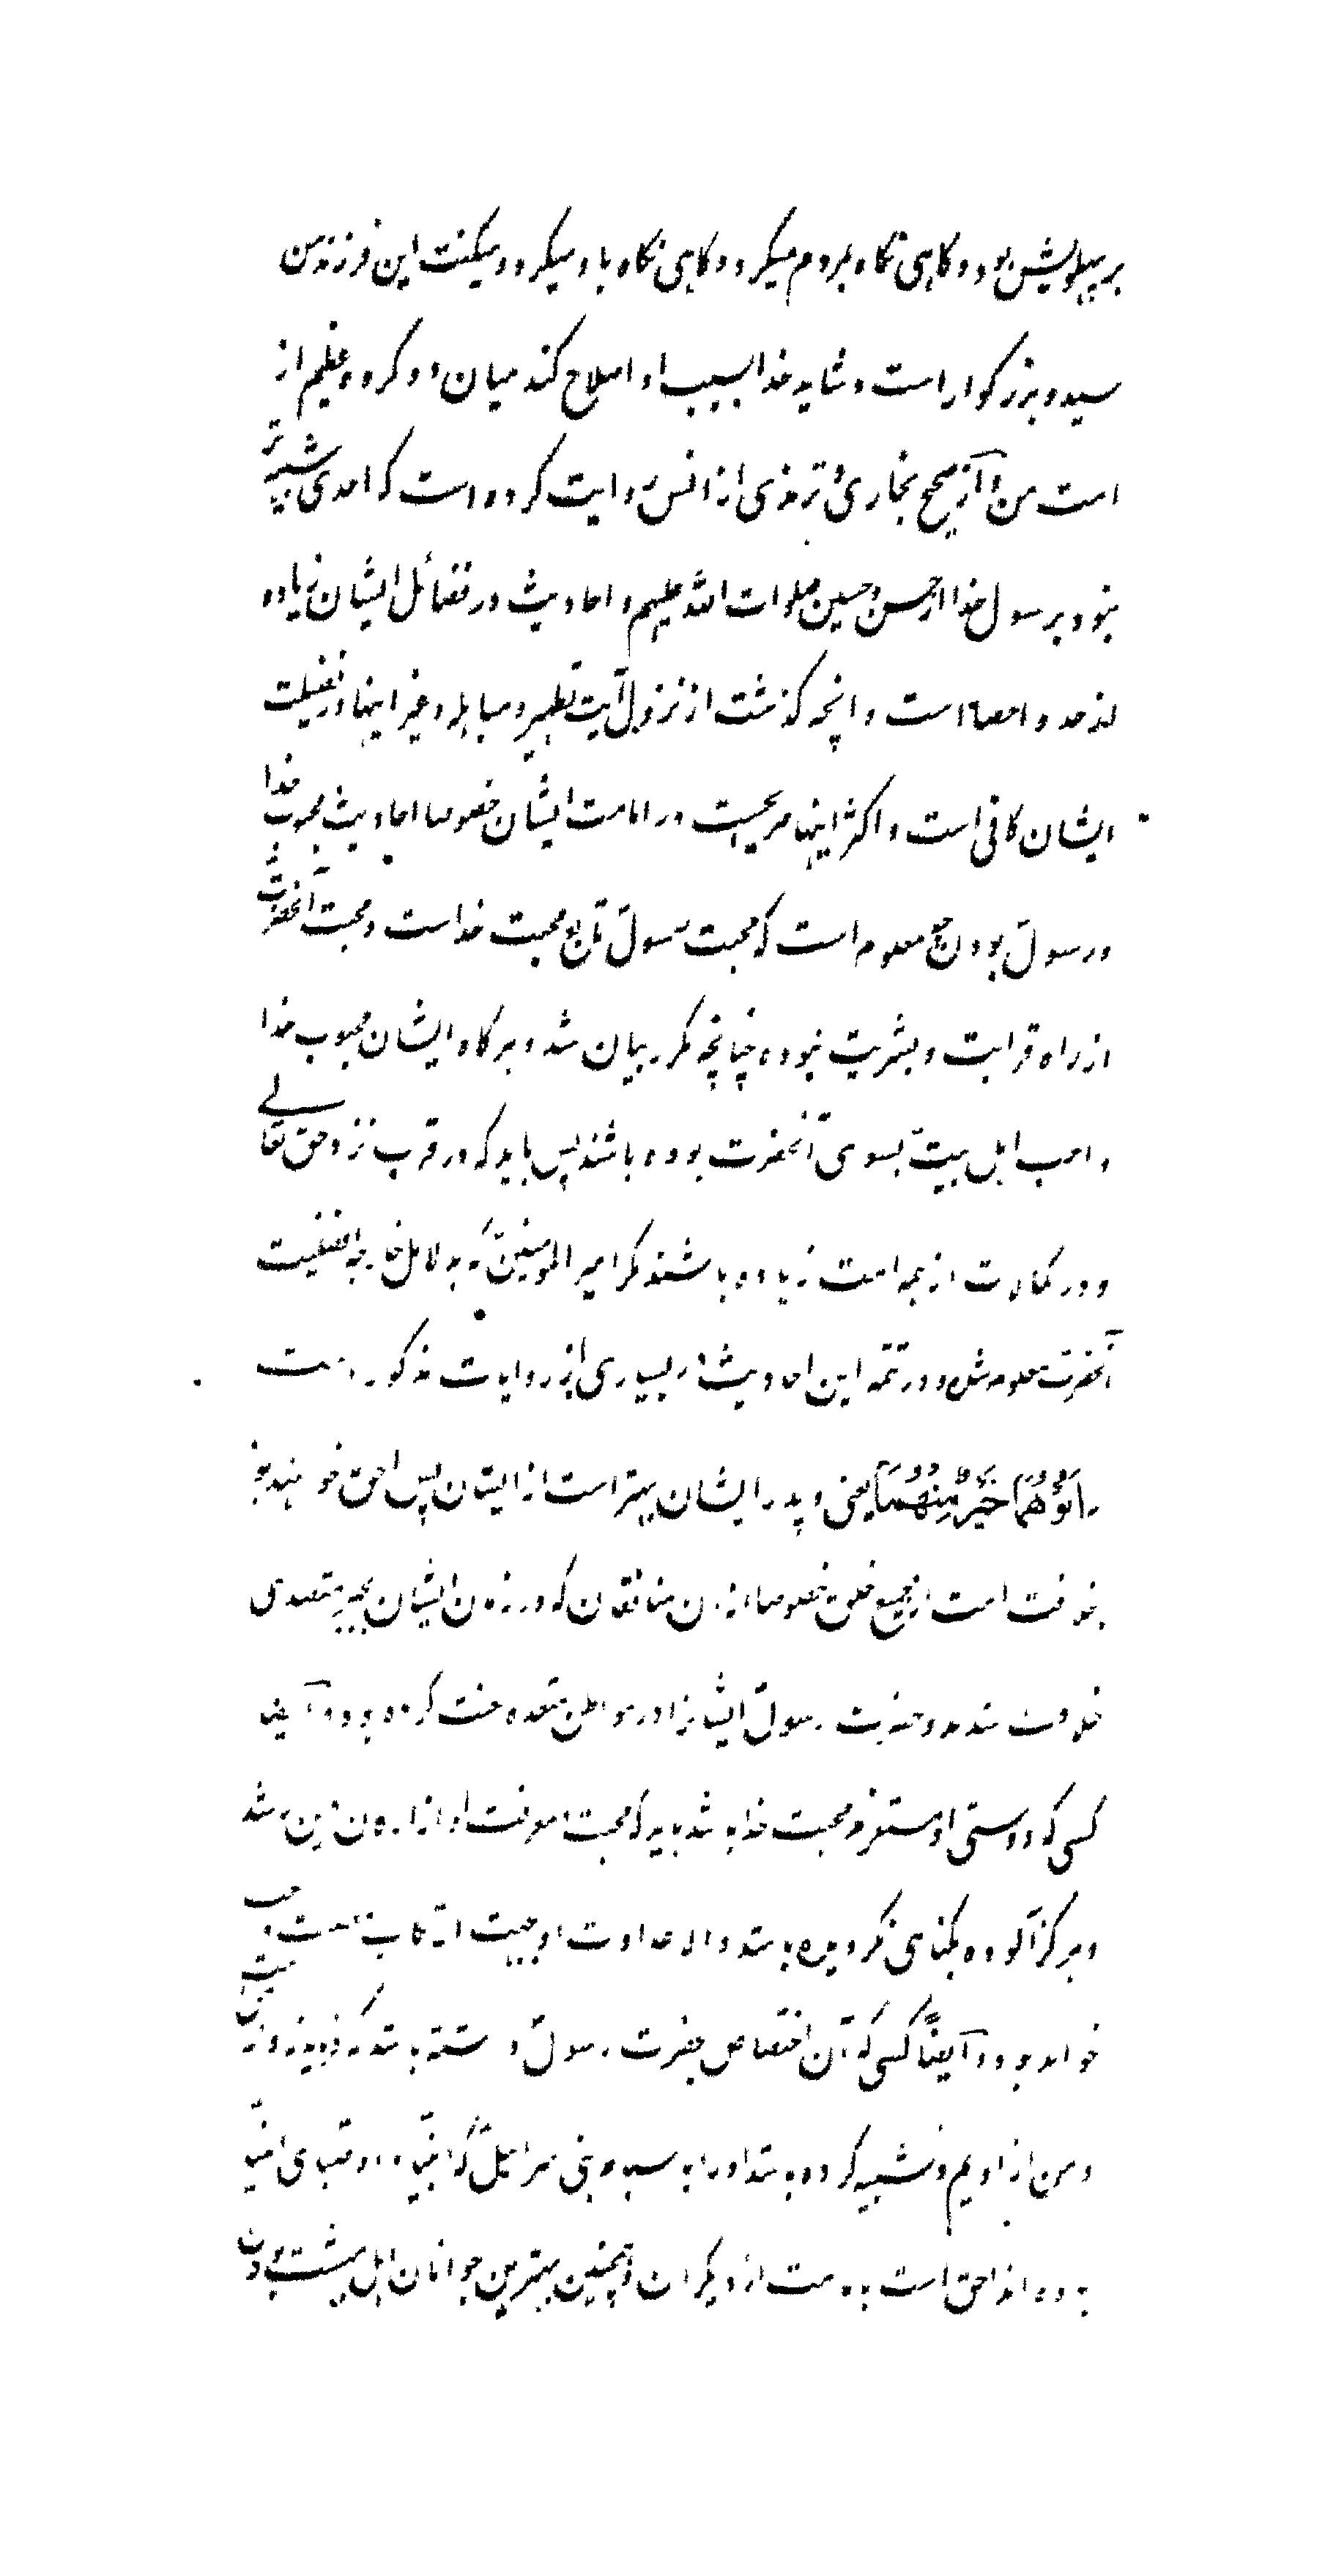 بر پهلویش بود و کاهی نگاه بمردم میکرد و کاهی نگاه باو میکرد و میگفت این فرزند من
سید و بزرگوار است و شاید خدا بسبب او اصلاح کند میان دو گروه عظیم از
امت من و از صحیح بخاری و ترمذی از انس روایت کرده است که احدی شبیه تر
نبود برسول خدا از حسن و حسین صلوات الله علیهم و احادیث در فضائل ایشان زیاده
از حد و احصا است و انچه گذشت از نزول آیت تطهیر و مباهله و غیر اینها در فضیلت
ایشان کافی است و اکثر اینها صریحست در امامت ایشان خصوصا احادیث محبوب خدا
و رسول بودن چه معلوم است که محبت رسول تابع محبت خداست و محبت آنحضرت
از راه قرابت و بشریت نبوده چنانچه مکرر بیان شد و هرگاه ایشان محبوب خدا
و احب اهل بیت بسوی آنحضرت بوده باشند پس باید که در قرب نزد حق تعالے
و در کمالات از همه امت زیاده باشند مگر امیر المومنین که بدلایل خارجه افضلیت
آنحضرت معلوم شده و در تتمه این احادیث در بسیاری از روایات مذکور است
وَاَبُوْهُمَا خَیْرٌ مِنْهُمَا یعنی و پدر ایشان بهتر است از ایشان پس احق خواهند بود
بخلافت امت از جمیع خلق خصوصا از آن منافقان که در زمان ایشان بجبر متصدی
خلافت شدند و حضرت رسول ایشانرا در مواطن متعدده لعنت کرده بود و ایضا
کسی که دوستی او مستلزم محبت خدا باشد باید که محبت او معرفت او از ارکان دین باشد
و هرگز آلوده بگناهی نگردیده باشد والا عداوت او بجهت ارتکاب معصیت واجب
خواهد بود و ایضاً کسی که آن اختصاص بحضرت رسول داشته باشد که فرماید از من است
و من از اویم و تشبیه کرده باشد او را به سبط بنی اسرائیل که انبیا و اوصیای انبیا
بوده اند احق است بامامت از دیگران و همچنین بهترین جوانان اهل بهشت بودن